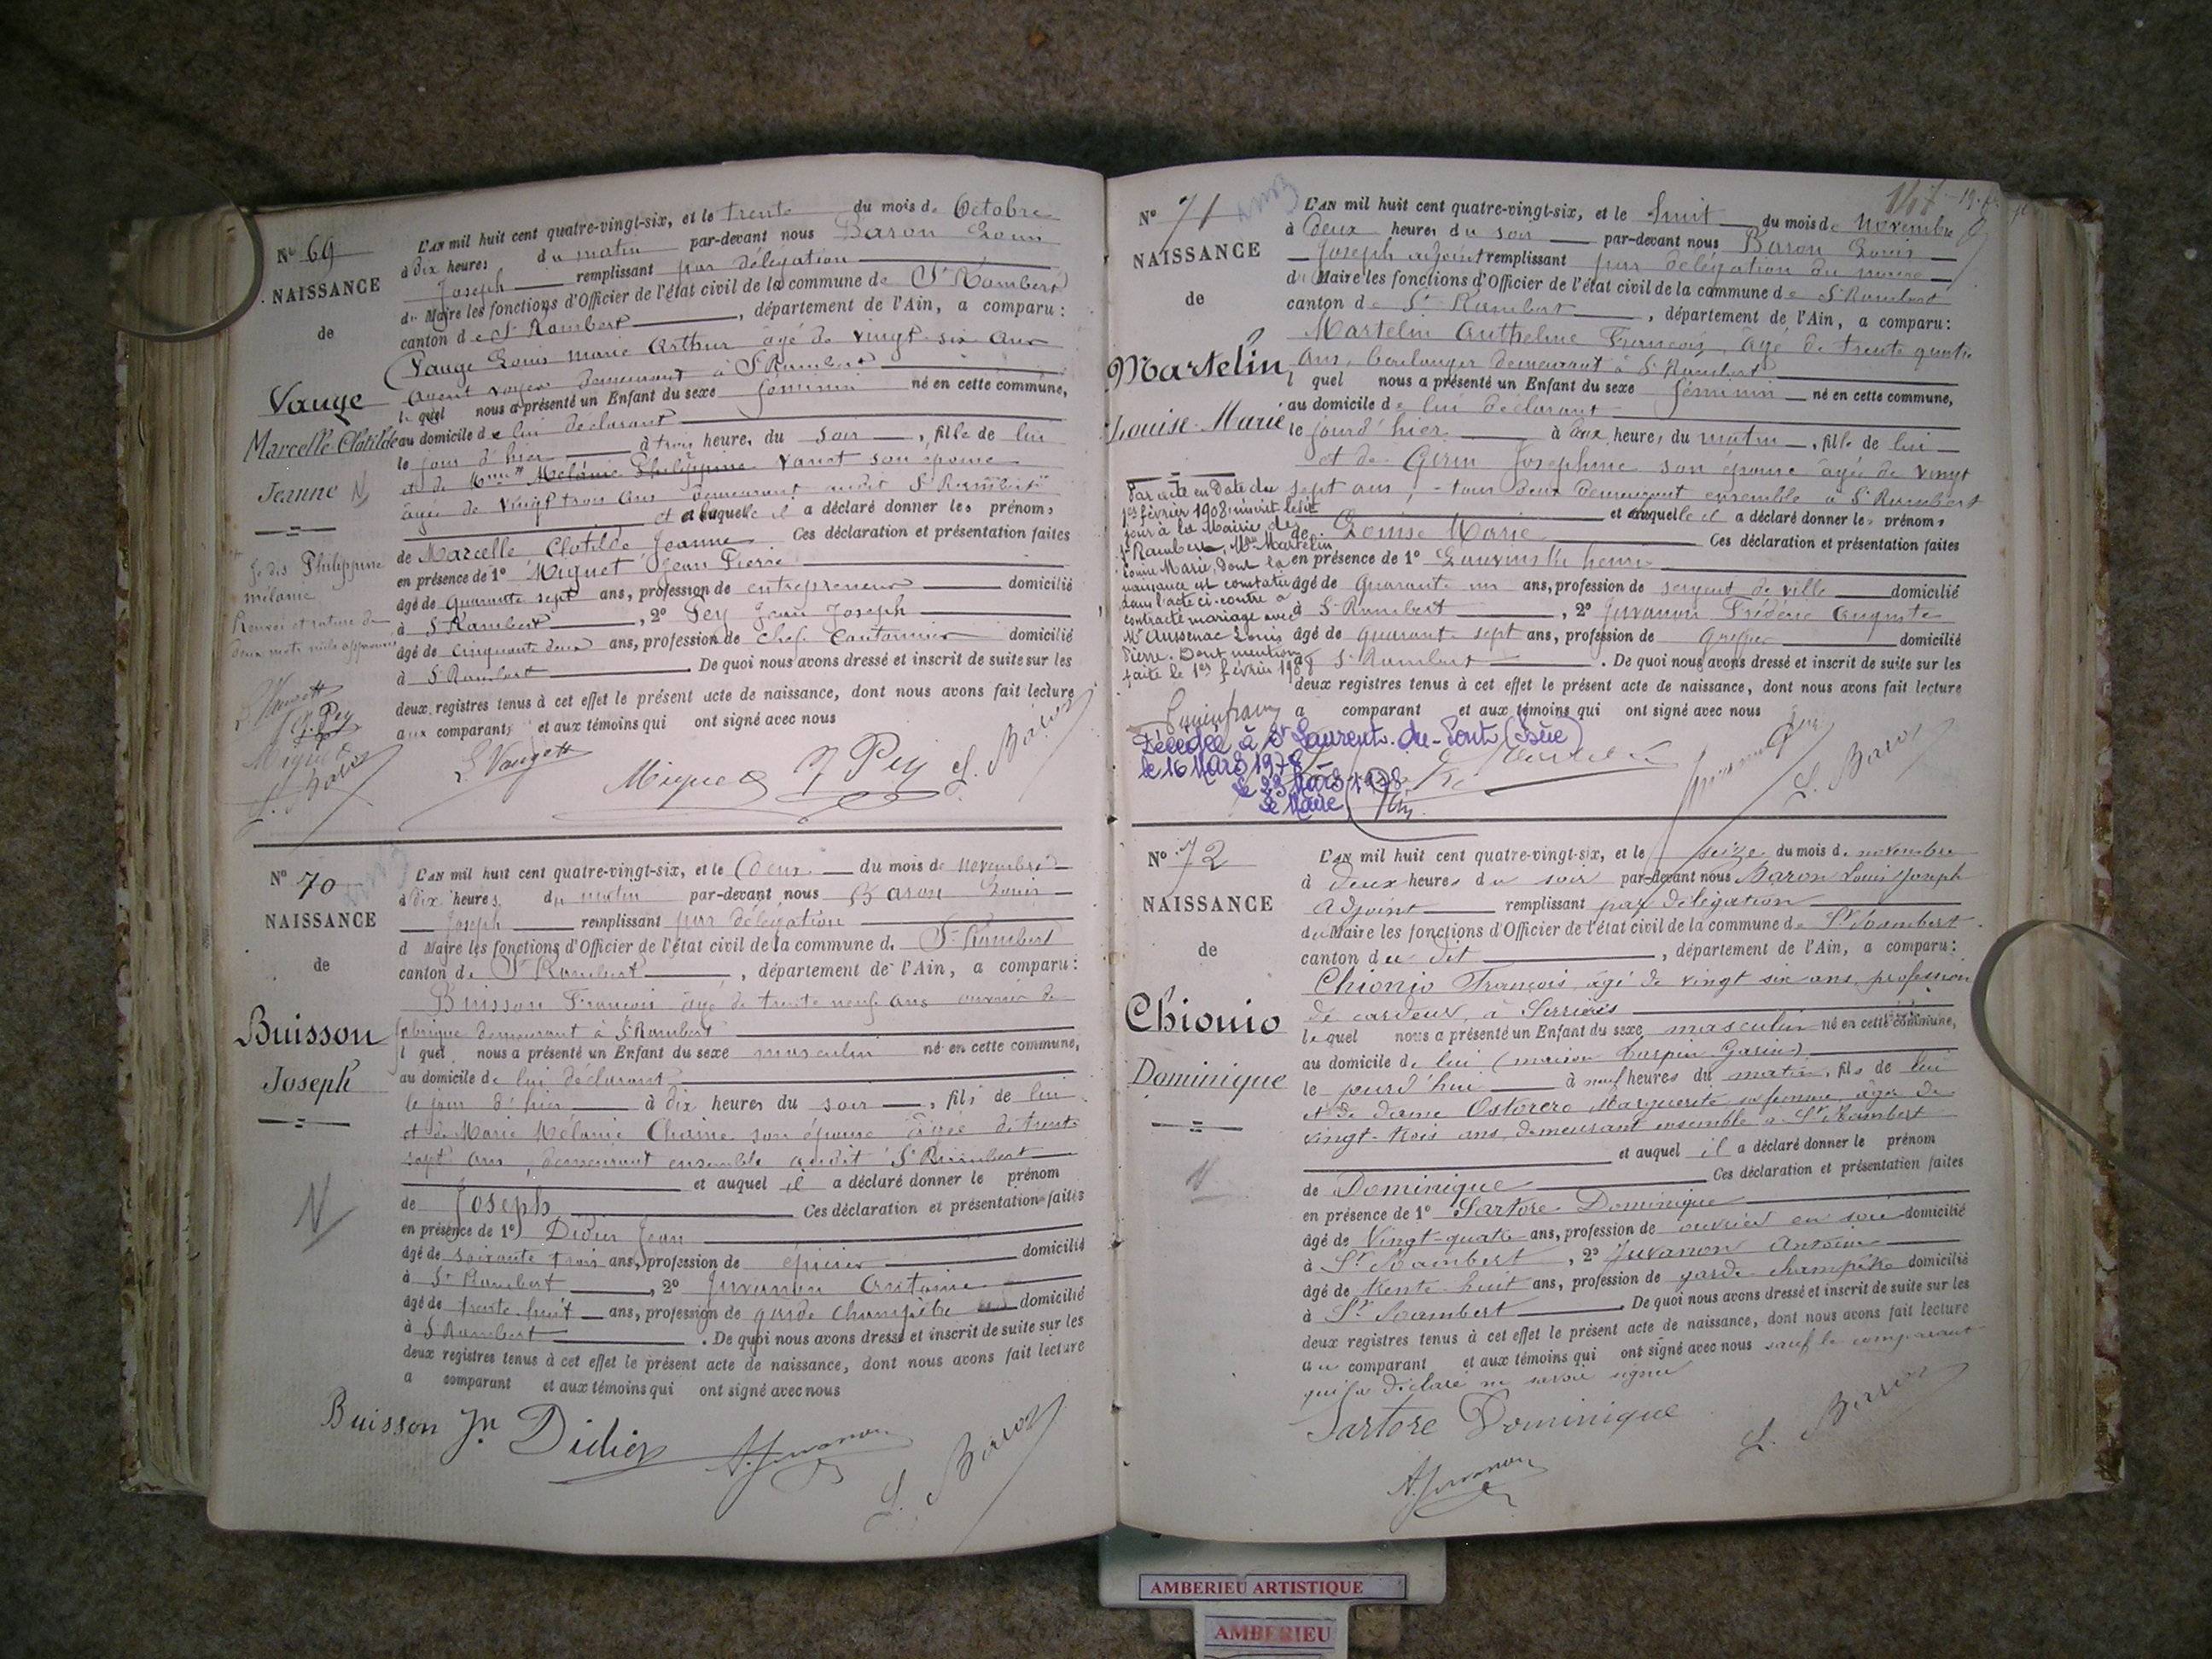 N° 69
NAISSANCE
de
Vauge
Marcelle Clotilde
Jeanne
L'AN mil huit cent quatre-vingt-six, et le trente du mois de Octobre
à dix heures du matin par-devant nous Baron Louis
Joseph remplissant par délégation
du Maire les fonctions d'Officier de l'état civil de la commune de St Rambert
canton de St Rambert, département de l'Ain, a comparu:
Vauge Louis Marie Arthur âgé de vingt six ans
agent voyer demeurant à St Rambert
lequel nous a présenté un Enfant du sexe féminin né en cette commune,
au domicile de lui déclarant
le jour d'hier à trois heures du soir, fille de lui
et de Mélanie Philippine son épouse
âgée de vingt trois ans demeurant audit St Rambert
et à laquelle il a déclaré donner les prénoms
de Marcelle Clotilde Jeanne Ces déclaration et présentation faites
en présence de 1° Miguet Jean Pierre
âgé de quarante sept ans, profession de entrepreneur domicilié
à St Rambert, 2° Pey Jean Joseph
âgé de cinquante deux ans, profession de chef cantonnier domicilié
à St Rambert. De quoi nous avons dressé et inscrit de suite sur les
deux registres tenus à cet effet le présent acte de naissance, dont nous avons fait lecture
aux comparant et aux témoins qui ont signé avec nous
Je dis Philippine
mélanie
Renvoi et rature de
deux mots nuls approuvés
Miguet J Pey L. Baron
N° 70
NAISSANCE
de
Buisson
Joseph
L'AN mil huit cent quatre-vingt-six, et le deux du mois de Novembre
à dix heures du matin par-devant nous Baron Louis
Joseph remplissant par délégation
d Maire les fonctions d'Officier de l'état civil de la commune de St Rambert
canton de St Rambert, département de l'Ain, a comparu:
Buisson François âgé de trente neuf ans ouvrier de
fabrique demeurant à St Rambert
l quel nous a présenté un Enfant du sexe masculin né en cette commune,
au domicile de lui déclarant
le jour d'hier à dix heures du soir, fils de lui
et de Marie Mélanie Chaine son épouse âgée de trente
sept ans, demeurant ensemble audit St Rambert
et auquel il a déclaré donner le prénom
de Joseph Ces déclaration et présentation faites
en présence de 1° Didier Jean
âgé de soixante trois ans, profession de épicier domicilié
à St Rambert, 2° Juvanon Antoine
âgé de trente huit ans, profession de garde champêtre domicilié
à St Rambert. De quoi nous avons dressé et inscrit de suite sur les
deux registres tenus à cet effet le présent acte de naissance, dont nous avons fait lecture
a comparant et aux témoins qui ont signé avec nous
Buisson Jn Didier A. Juvanon L. Baron
147
N° 71
NAISSANCE
de
Martelin
Louise Marie
L'AN mil huit cent quatre-vingt-six, et le huit du mois de Novembre
à deux heures du soir par-devant nous Baron Louis
Joseph adjoint remplissant par délégation du maire
du Maire les fonctions d'Officier de l'état civil de la commune de St Rambert
canton de St Rambert, département de l'Ain, a comparu:
Martelin Anthelme François, âgé de trente quatre
ans, boulanger demeurant à St Rambert
l quel nous a présenté un Enfant du sexe féminin né en cette commune,
au domicile de lui déclarant
le jourd'hier à deux heures du matin, fille de lui
et de Girin Joséphine son épouse âgée de vingt
sept ans, tous deux demeurant ensemble à St Rambert
et auquelle il a déclaré donner les prénoms
de Louise Marie Ces déclaration et présentation faites
en présence de 1° henri
âgé de quarante un ans, profession de sergent de ville domicilié
à St Rambert, 2° Juvanon Frédéric Auguste
âgé de quarante sept ans, profession de greffier domicilié
à St Rambert. De quoi nous avons dressé et inscrit de suite sur les
deux registres tenus à cet effet le présent acte de naissance, dont nous avons fait lecture
a comparant et aux témoins qui ont signé avec nous
Par acte en date du
1er février 1908 inscrit ledit
jour à la Mairie de
St Rambert, Mlle Martelin
Louise Marie, dont la
naissance est constatée
dans l'acte ci-contre a
contracté mariage avec
Mr Aussenac Louis
Pierre. Dont mention
faite le 1er février 1908
Décédée à St Laurent-du-Pont (Isère)
le 16 Mars 1978
le 23 Mars 1978
Le Maire
L. Baron
N° 72
NAISSANCE
de
Chionio
Dominique
L'AN mil huit cent quatre-vingt-six, et le seize du mois de novembre
à deux heures du soir par-devant nous Baron Louis Joseph
Adjoint remplissant par délégation
du Maire les fonctions d'Officier de l'état civil de la commune de St Rambert
canton du dit, département de l'Ain, a comparu:
Chionio François, âgé de vingt six ans, profession
de cardeur, à Serrières
lequel nous a présenté un Enfant du sexe masculin né en cette commune,
au domicile de lui (maison Garin)
le jourd'hui à neuf heures du matin, fils de lui
et de dame Ostorero Marguerite sa femme, âgée de
vingt-trois ans, demeurant ensemble à St Rambert
et auquel il a déclaré donner le prénom
de Dominique Ces déclaration et présentation faites
en présence de 1° Sartore Dominique
âgé de vingt-quatre ans, profession de ouvrier en soie domicilié
à St Rambert, 2° Juvanon Antoine
âgé de trente huit ans, profession de garde champêtre domicilié
à St Rambert. De quoi nous avons dressé et inscrit de suite sur les
deux registres tenus à cet effet le présent acte de naissance, dont nous avons fait lecture
au comparant et aux témoins qui ont signé avec nous sauf le comparant
qui a déclaré ne savoir signer
Sartore Dominique
L. Baron
A. Juvanon
AMBERIEU ARTISTIQUE
AMBERIEU